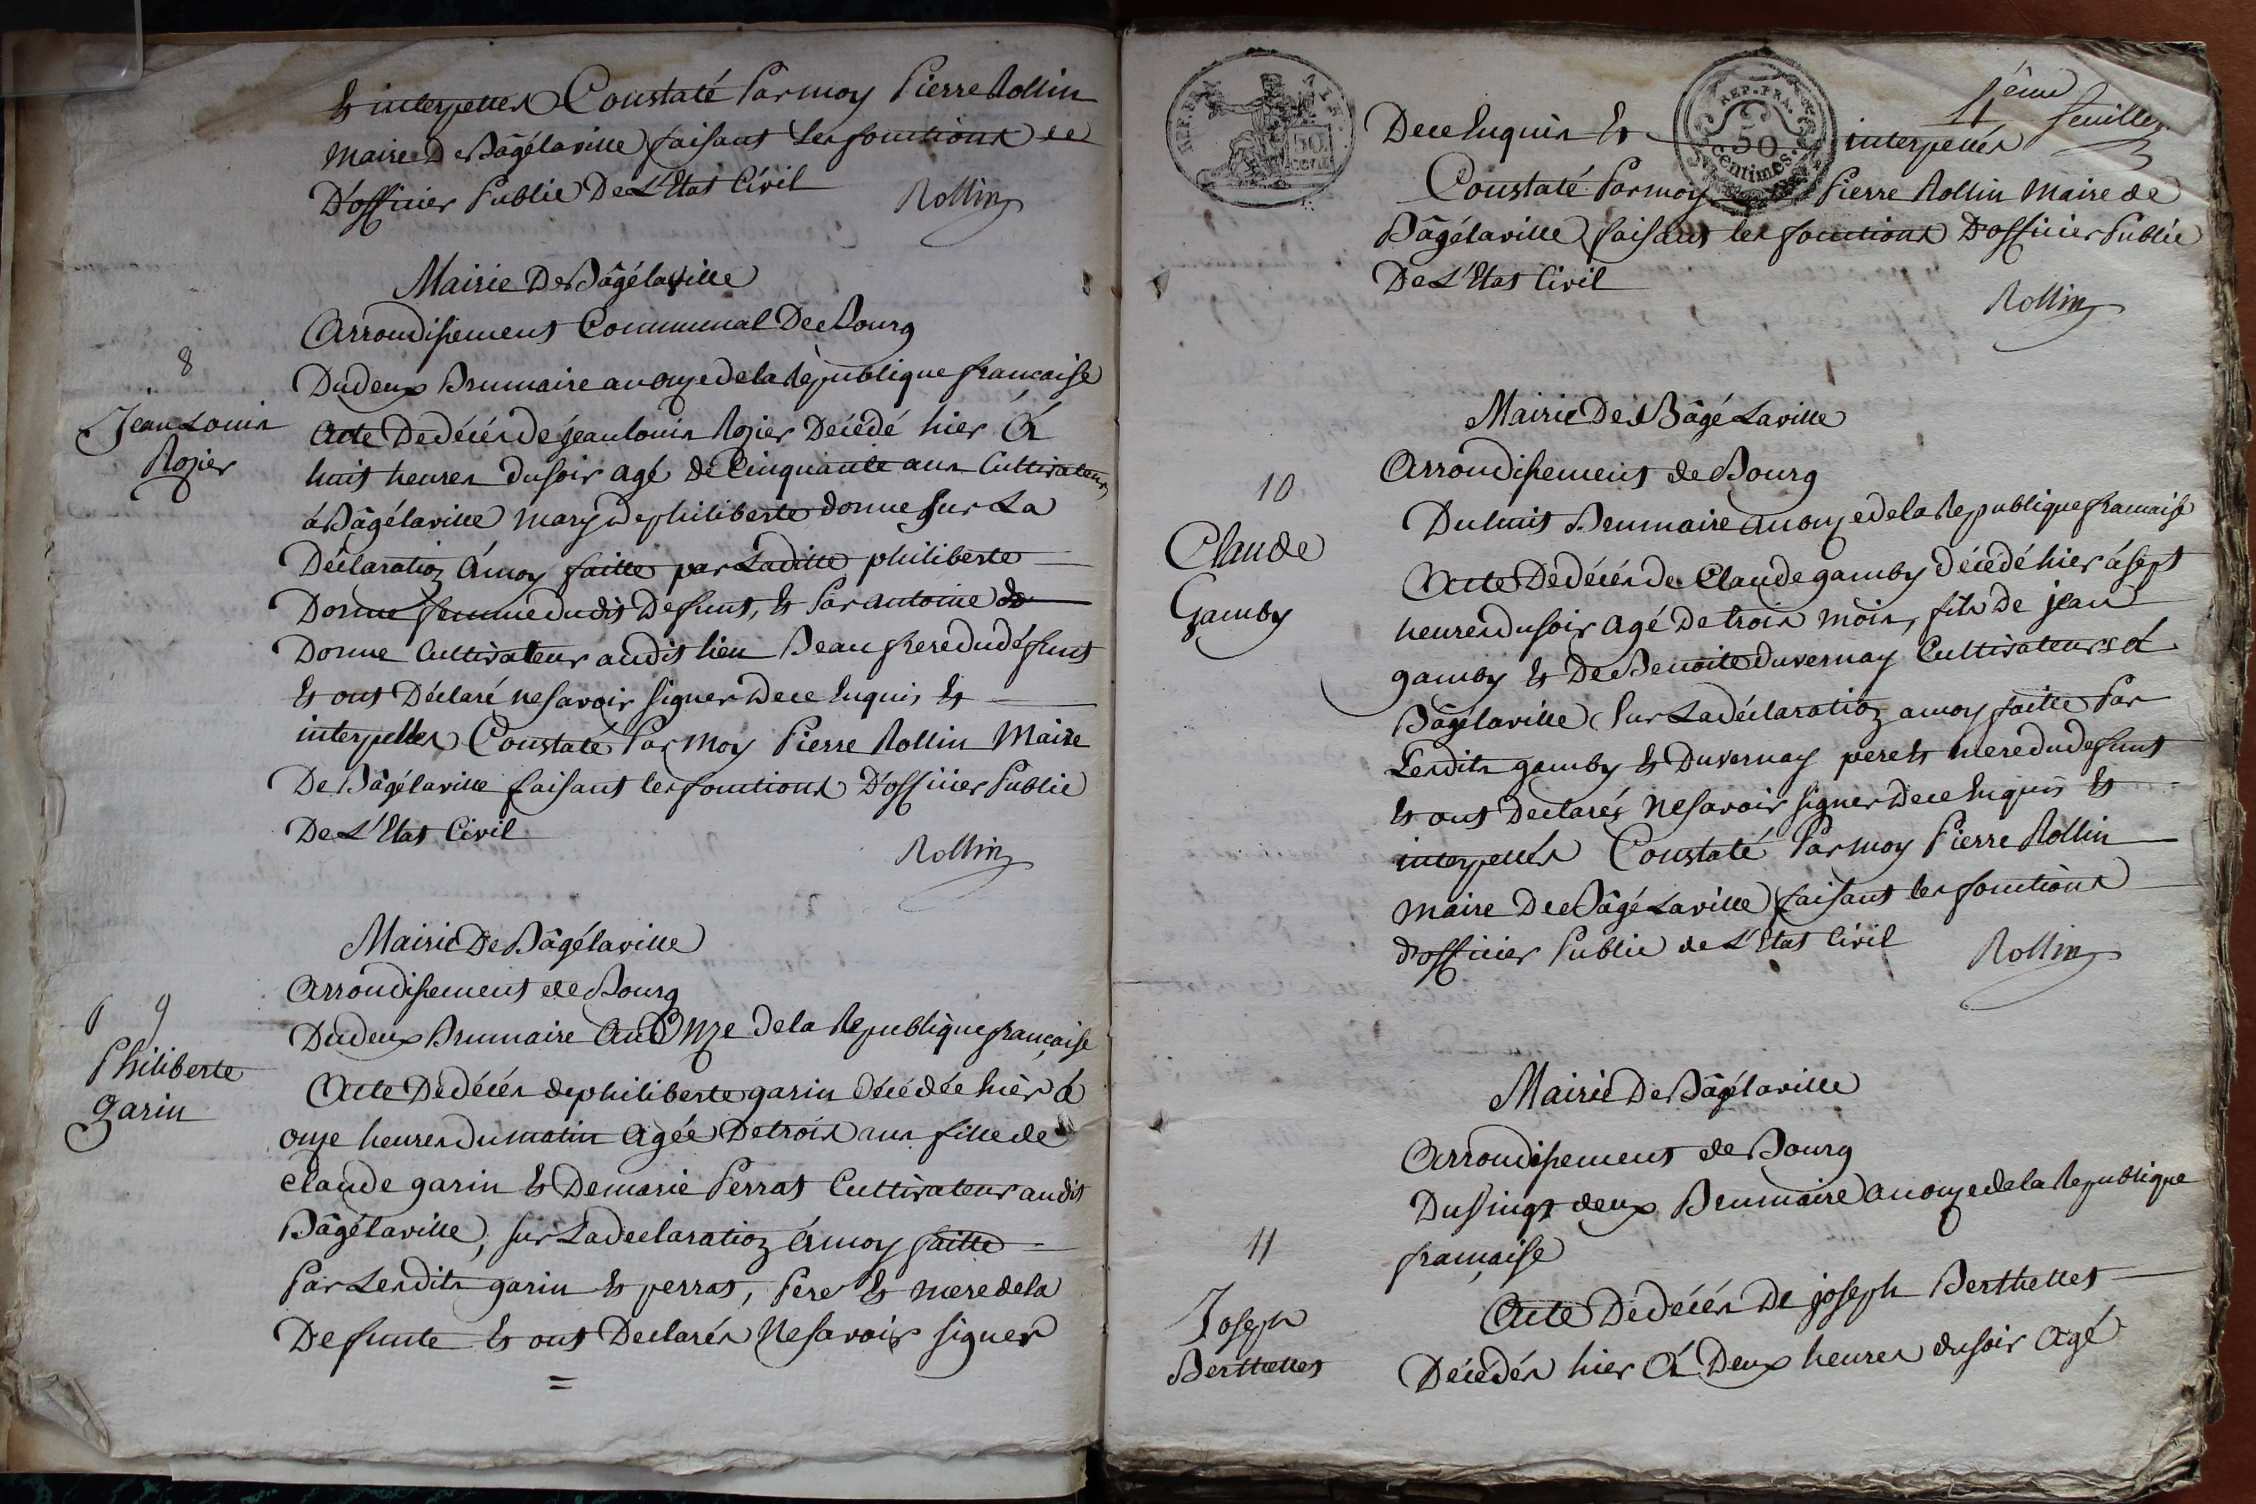 Et interpellés Constaté Par moy Pierre Rollin
Maire De Bâgélaville faisant les fonctions de
D'officier Public De L'Etat Civil
Rollin
Mairie De Bâgélaville
Arrondissement Communal De Bourg
8
Jean Louis
Rozier
Du deux Brumaire an onze de la République francaise
Acte De décés de jean louis Rozier Décédé hier á
huit heures du soir agé de Cinquante ans Cultivateur
á Bâgélaville mary de philiberte donne sur La
Déclaration á moy faitte par Laditte philiberte
Donne femme dudit Defunt, Et Par antoine
Donne Cultivateur audit lieu Beaufrere du défunt
Et ont Déclaré ne savoir signer De ce Enquis Et
interpellés Constaté Par Moy Pierre Rollin Maire
De Bâgélaville faisant les fonctions D'officier Public
De L'Etat Civil
Rollin
Mairie De Bâgélaville
Arrondissement de Bourg
9
Philiberte
garin
Du deux Brumaire An Onze de la Republique française
Acte De décés de philiberte garin décédée hièr á
onze heures du matin agée De trois ans fille de
Claude garin Et De marie Perrat Cultivateur audit
Bâgélaville, sur La declaration á moy faitte
Par Lesdits garin Et perrat, Pere Et mere de la
Defunte Et ont Declarés Ne savoir signer
=
4ème feuillet
REP. FRA.
50
cent.
REP. FRA.
50
centimes.
De ce Enquis Et interpellés
Constaté Par moy Pierre Rollin Maire de
Bâgélaville faisant les fonctions D'officier Public
De L'Etat Civil
Rollin
Mairie De Bâgé Laville
Arrondissement de Bourg
10
Claude
Gamby
Du huit Brumaire an onze de la Republique francaise
Acte De décés de Claude gamby décédé hier á sept
heures du soir Agé De trois mois, fils De jean
gamby Et De Benoite duvernay Cultivateurs á
Bâgélaville Sur La déclaration a moy faitte Par
Lesdits gamby Et Duvernay pere Et mere du defunt
Et ont Declarés Ne savoir signer De ce Enquis Et
interpellés Constaté Par moy Pierre Rollin
maire De Bâgé Laville faisant les fonctions
d'officier Public de L'Etat Civil
Rollin
Mairie De Bâgélaville
Arrondissement de Bourg
Du Vingt deux Brumaire an onze de la Republique
française
11
Joseph
Berthellet
Acte De décés De joseph Berthellet
Décédés hier á Deux heures du soir agé